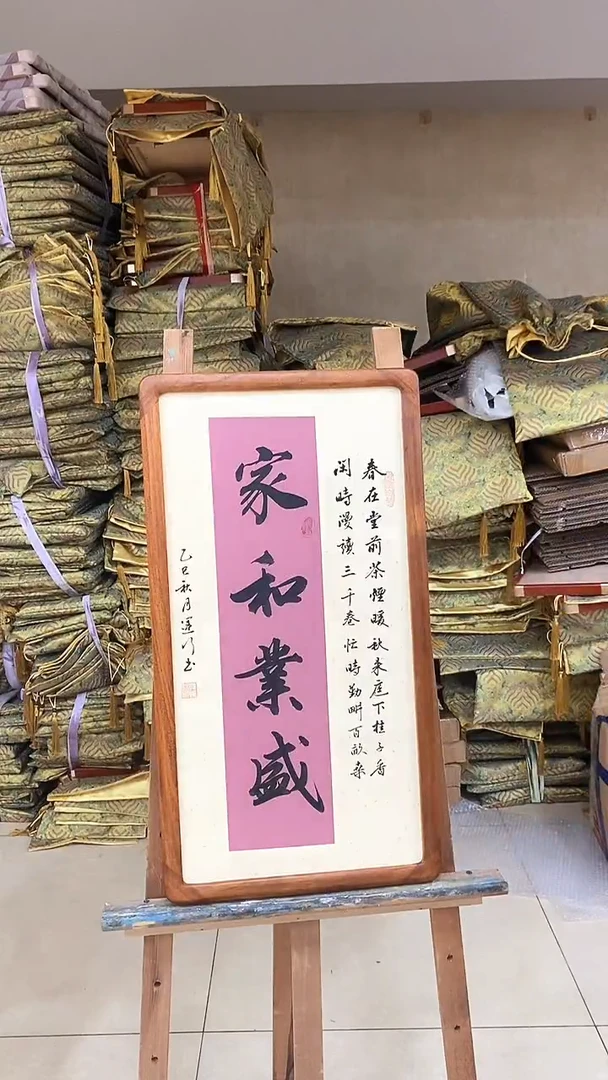 春在堂前茶煙暖秋来庭下桂子香
閑時漫讀三千卷忙時勤畊百畝桑
家和業盛
乙巳秋月